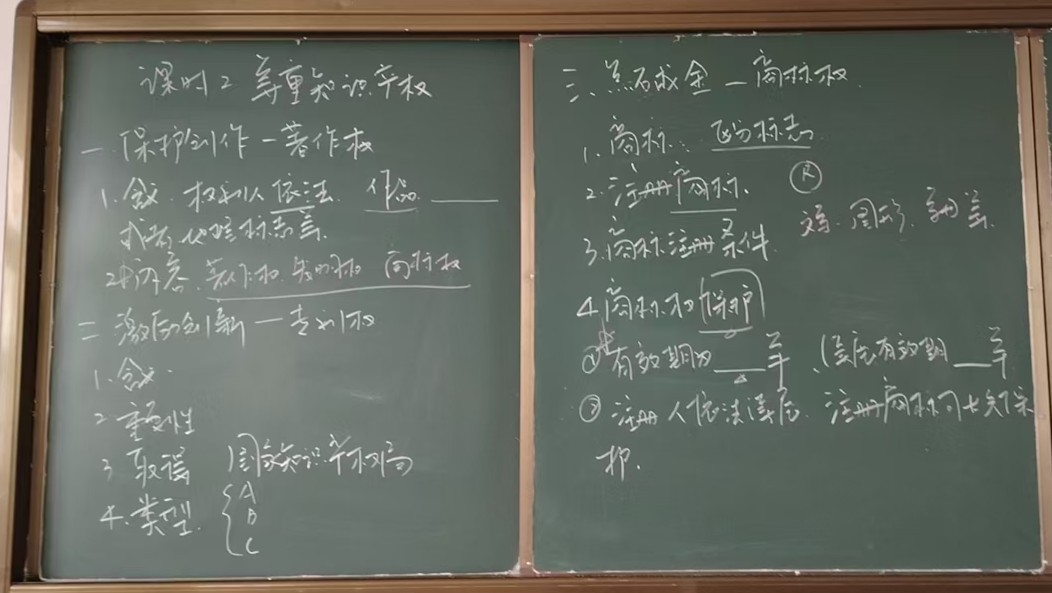 课时2 尊重知识产权
一 保护创作—著作权
1. 含义. 权利人依法. 作品. ____
或者 标志
2. 内容. 著作权. 发明权 商标权
二 激励创新—专利权
1. 含义.
2 重要性
3 取得 国家知识产权局
4. 类型. { A
B
C
三、点石成金—商标权
1. 商标: 区分标志
2. 注册商标. Ⓡ
文字、图形、
3. 商标注册条件
4. 商标权保护
① 有效期为____年、续展有效期__年
② 注册人依法续展. 注册商标可长久保
护.